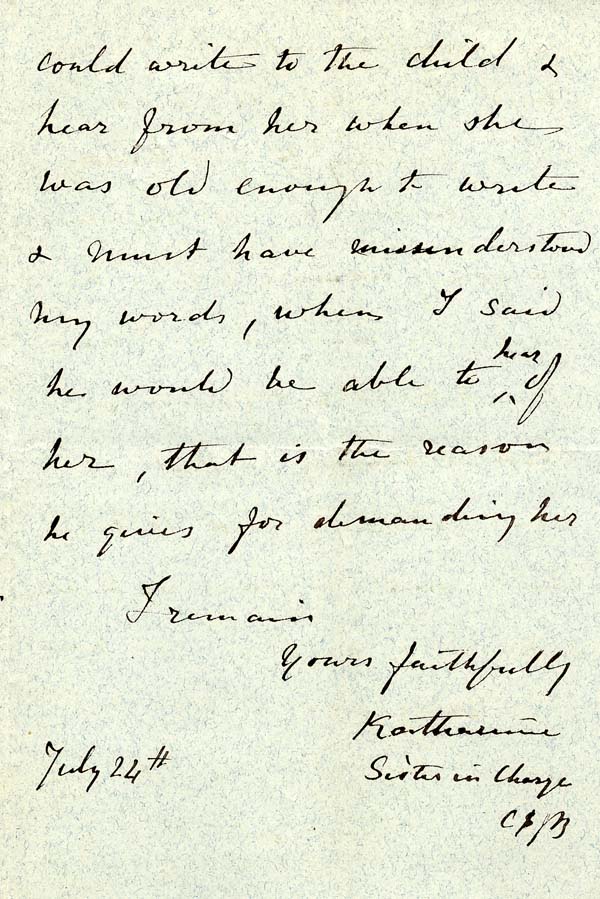 could write to the child &
hear from her when she
was old enough to write
& must have misunderstood
my words, when I said
he would be able to hear of
her, that is the reason
he gives for demanding her
I remain
Yours faithfully
Katharine
July 24th
Sister in Charge
CSJB